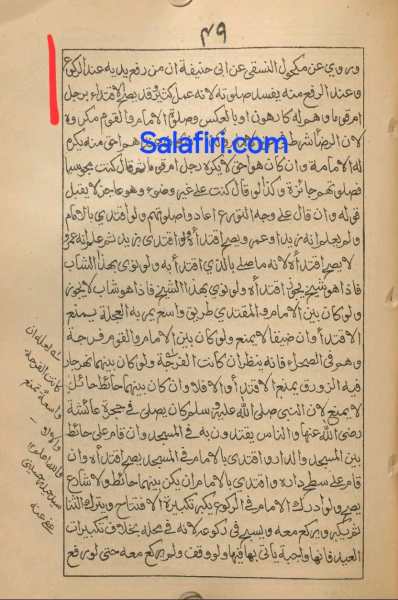 ٤٩
وروي عن مكحول النسفي عن ابي حنيفة ان من رفع يديه عند الركوع
وعند الرفع منه يفسد صلوته لانه عمل كثير قد يصح الاقتداء برجل
امرقوما وهم له كارهون او بالعكس وصلوة الامام والقوم مكروه
لان الرضا شرط هو احق منه يكره
Salafiri.com
له الامامة وان كان هو احق لا يكره رجل ام قوما ثم قال كنت مجوسيا
فصلوتهم جائزة وكذا لو قال كنت على غير وضوء وهو ماجن لا يقبل
قوله وان قال على وجه التورع اعادوا صلوتهم ولو اقتدى بالامام
ولم يعلم انه زيد او عمرو يصح اقتداءه ولو اقتدى بزيد ثم علم انه عمرو
لا يصح اقتداءه لانه ما صلى بالذي اقتدى به ولو نوى بهذا الشاب
فاذا هو شيخ يجوز اقتداءه ولو نوى بهذا الشيخ فاذا هو شاب لا يجوز
ولو كان بين الامام والمقتدي طريق واسع يمر به العجلة يمنع
الاقتداء وان ضيقا لا يمنع ولو كان بين الامام والقوم فرجة
وهو في الصحراء فانه ينظر ان كانت الفرجة ولو كان بينهما نهر جار
فيه الزورق يمنع الاقتداء والا فلا وان كان بينهما حائط حائل
لا يمنع لان النبي صلى الله عليه وسلم كان يصلي في حجرة عائشة
رضي الله عنها والناس يقتدون به في المسجد وان قام على حائط
بين المسجد والدار واقتدى بالامام في المسجد يصح اقتداءه وان
قام على سطح داره واقتدى بالامام ان يكن بينهما حائط ولا شارع
يصح ولو ادرك الامام في الركوع يكبر تكبيرة الافتتاح ويترك الثنا
ثم يكبر ويركع معه ويسبح في ركوعه لانه في محله بخلاف تكبيرات
العيد فانها واجبة ياتي بها فيها ولو وقف ولم يركع معه حتى لو رفع
كانت الفرجة
واسعة تمنع